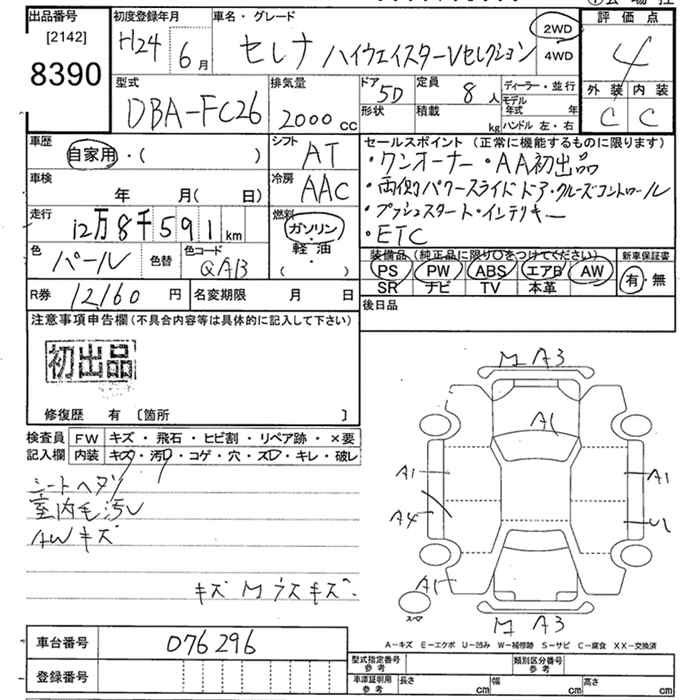 出品番号 初度登録年月 車名・グレード 評価点
[2142]
8390
H24 6月 セレナ ハイウェイスターVセレクション 2WD 4WD 4
型式 排気量 ドア 5D 定員 8人 ディーラー・並行
外装 内装
DBA-FC26 2000cc 形状 積載 kg モデル年式 年
ハンドル 左・右 C C
車歴 シフト セールスポイント(正常に機能するものに限ります)
自家用・( ) AT ・ワンオーナー・AA初出品
車検 冷房 ・両側パワースライドドア・クルーズコントロール
年 月( 日) AAC
走行 燃料 ・プッシュスタート・インテリキー
12万8千591km ガソリン・軽油・( ) ・ETC
色 パール 色替 色コード QAB
装備品(純正品に限り○をつけてください) 新車保証書
PS PW ABS エアB AW 有・無
SR ナビ TV 本革
R券 12160円 名変期限 月 日 後日品
注意事項申告欄(不具合内容等は具体的に記入して下さい)
初出品
修復歴 有 〔箇所 〕
検査員 FW キズ・飛石・ヒビ割・リペア跡・×要
記入欄 内装 キズ・汚レ・コゲ・穴・スレ・キレ・破レ
シートヘタリ
室内毛汚レ
AWキズ
キズ M ウスキズ
M A3
A1
A1 A1
A4 U1
A1
スペア
M A3
A-キズ E-エクボ U-凹み W-補修跡 S-サビ C-腐食 XX-交換済
車台番号 076296
型式指定番号 参考 類別区分番号 参考
登録番号 車庫証明用 参考 長さ cm 幅 cm 高さ cm